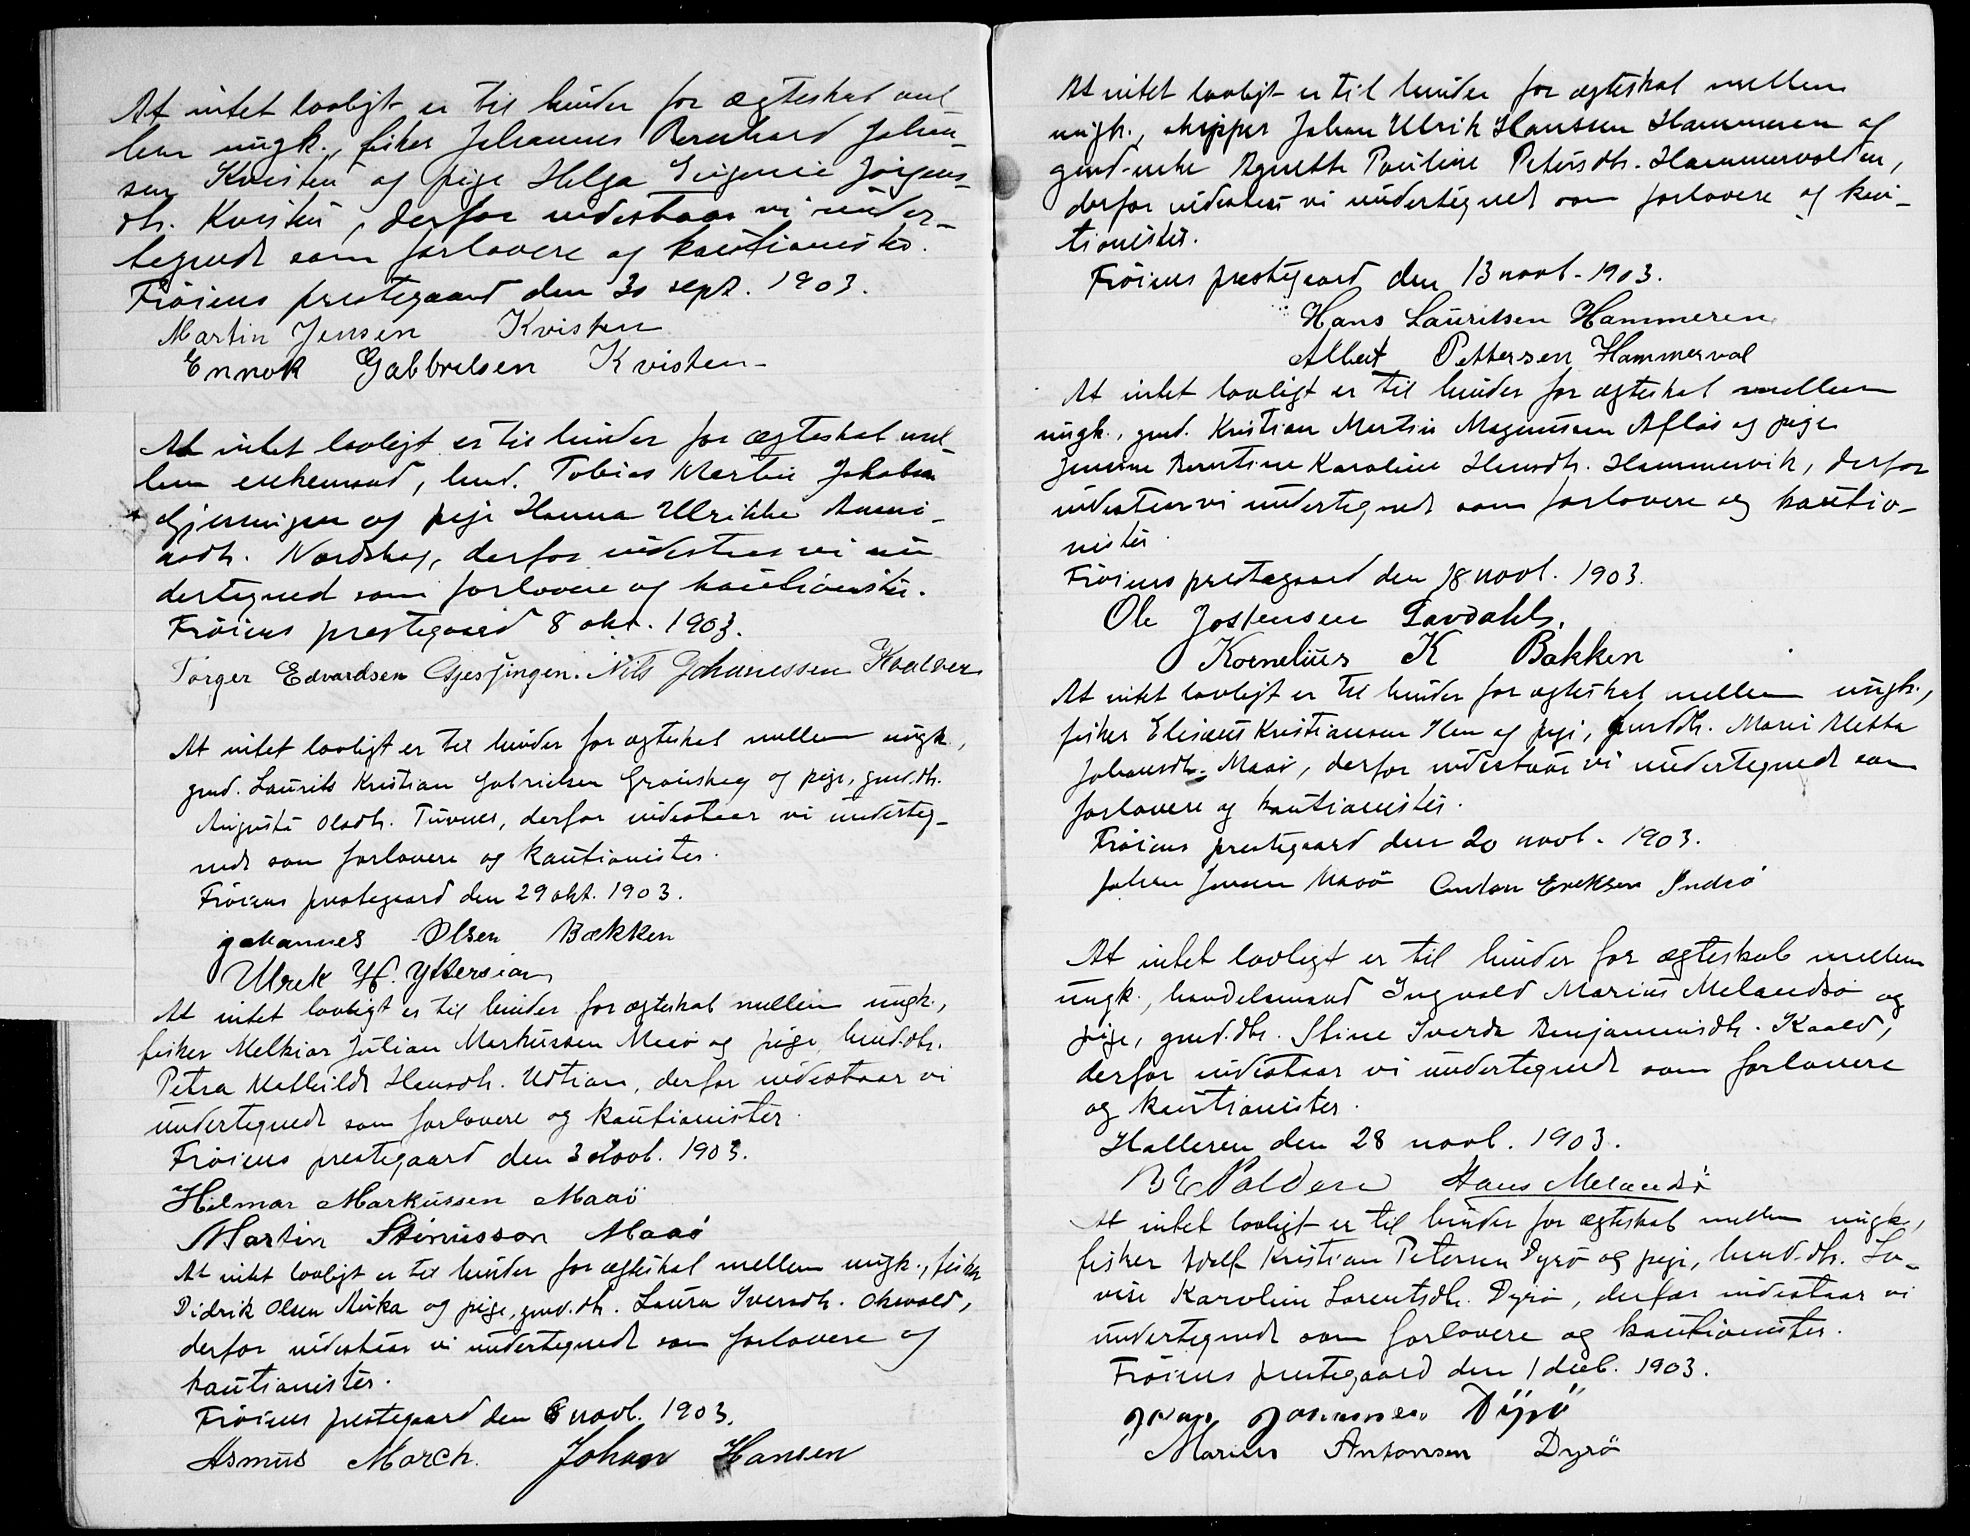 At intet lovligt er til hinder for ægteskab mel
lem ungk., fisker Johannes Bernhard Johan-
sen Kvisten og pige Helga Eugenie Jörgens-
dtr. Kvisten, derfor indestaar vi under-
tegnede som forlovere og kautionister.
Fröiens prestegaard den 30 sept. 1903.
Martin Jensen Kvisten
Ennok Gabbrelsen Kvisten
At intet lovligt er til hinder for ægteskab mel
lem enkemand, hmd. Tobias Martin Jakobsen
Gjessingen og pige Hanna Ulrikke
Nordskag, derfor indestaar vi un
dertegned som forlovere og kautionister.
Fröiens prestegaard 8 okt. 1903.
Torger Edvardsen Gjesjingen. Nils Johanessen Kvalver
At intet lovligt er til hinder for ægteskab mellem ungk.,
gmd. Laurits Kristian Gabrielsen Grönskag og pige, gmd.dtr.
Auguste Olsdtr. Tuvnes, derfor indestaar vi underteg-
nede som forlovere og kautionister.
Fröiens prestegaard den 29 okt. 1903.
Johannes Olsen Bækken
Ulrek H. Yttersian
At intet lovligt er til hinder for ægteskab mellem ungk.,
fisker Melkior Julian Markussen Maaö og pige, hmd.dtr.
Petra Mathilde Hansdtr. Udtian, derfor indestaar vi
undertegnede som forlovere og kautionister.
Fröiens prestegaard den 3 novb. 1903.
Hilmar Markussen Maaö
Martin Stinusson Maaö
At intet lovligt er til hinder for ægteskab mellem ungk., fisker
Didrik Olsen Auka og pige, gmd.dtr. Laura Iversdtr. Okvald,
derfor indestaar vi undertegnede som forlovere og
kautionister.
Fröiens prestegaard den 6 novb. 1903.
Asmus March. Johan Hansen
At intet lovligt er til hinder for ægteskab mellem
ungk., skipper Johan Ulrik Hansen Hammeren og
gmd-enke Agnethe Pauline Petersdtr. Hammervolden,
derfor indestaar vi undertegnede som forlovere og kau-
tionister.
Fröiens prestegaard den 13 novb. 1903.
Hans Lauritsen Hammeren
Albert Pettersen Hammervol
At intet lovligt er til hinder for ægteskab mellem
ungk., gmd. Kristian Martin Magnussen Aflös og pige
Jensine Berntine Karoline Hansdtr. Hammervik, derfor
indestaar vi undertegnede som forlovere og kautio-
nister.
Fröiens prestegaard den 18 novb. 1903.
Ole Jostensen Lavdahl.
Kornelius K Bakken
At intet lovligt er til hinder for ægteskab mellem ungk.,
fisker Eliseus Kristiansen Hen og pige, gmd.dtr. Marie Aletta
Johansdtr. Maaö, derfor indestaar vi undertegnede som
forlovere og kautionister.
Fröiens prestegaard den 20 novb. 1903.
Johan Jensen Maaö Anton Eriksen Indrö
At intet lovligt er til hinder for ægteskab mellem
ungk., handelsmand Ingvald Marius Melandsö og
pige, gmd.dtr. Stine Iverda Benjaminsdtr. Kaald,
derfor indestaar vi undertegnede som forlovere
og kautionister.
Halleren den 28 novb. 1903.
Hans Melandsö
At intet lovligt er til hinder for ægteskab mellem ungk.,
fisker Adolf Kristian Petersen Dyrö og pige, hmd.dtr. Lo-
vise Karoline Lorentsdtr. Dyrö, derfor indestaar vi
undertegnede som forlovere og kautionister.
Fröiens prestegaard den 1 decb. 1903.
Johannesen Dÿrö
Marius Antonsen Dyrö